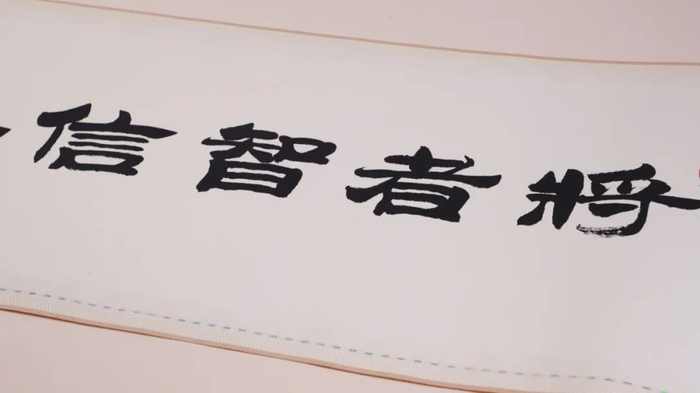 將者智信